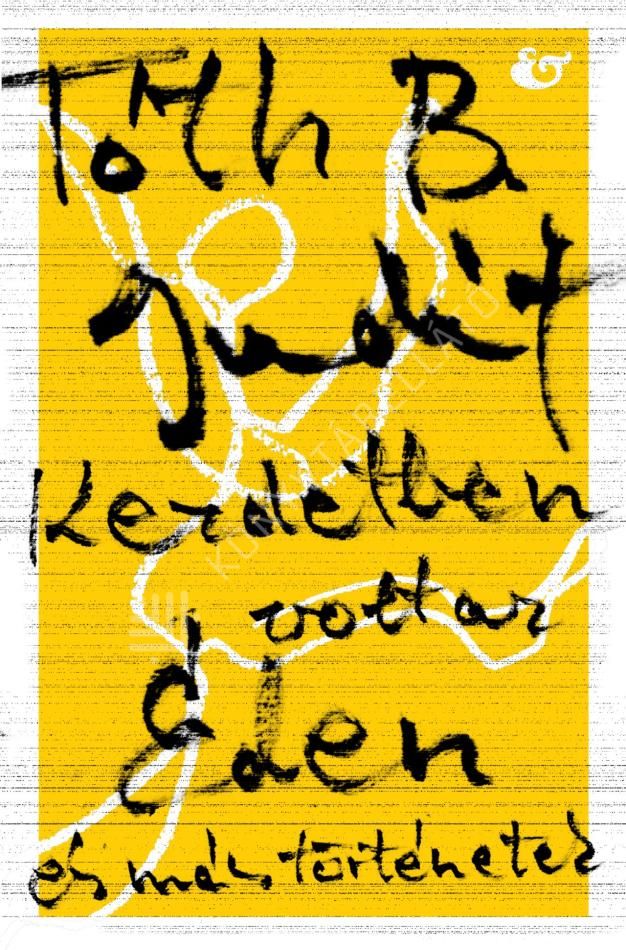 &
Tóth B
Judit
Kezdetben
volt az
Éden
és más történetek
KÖNYVTÁRELLÁTÓ